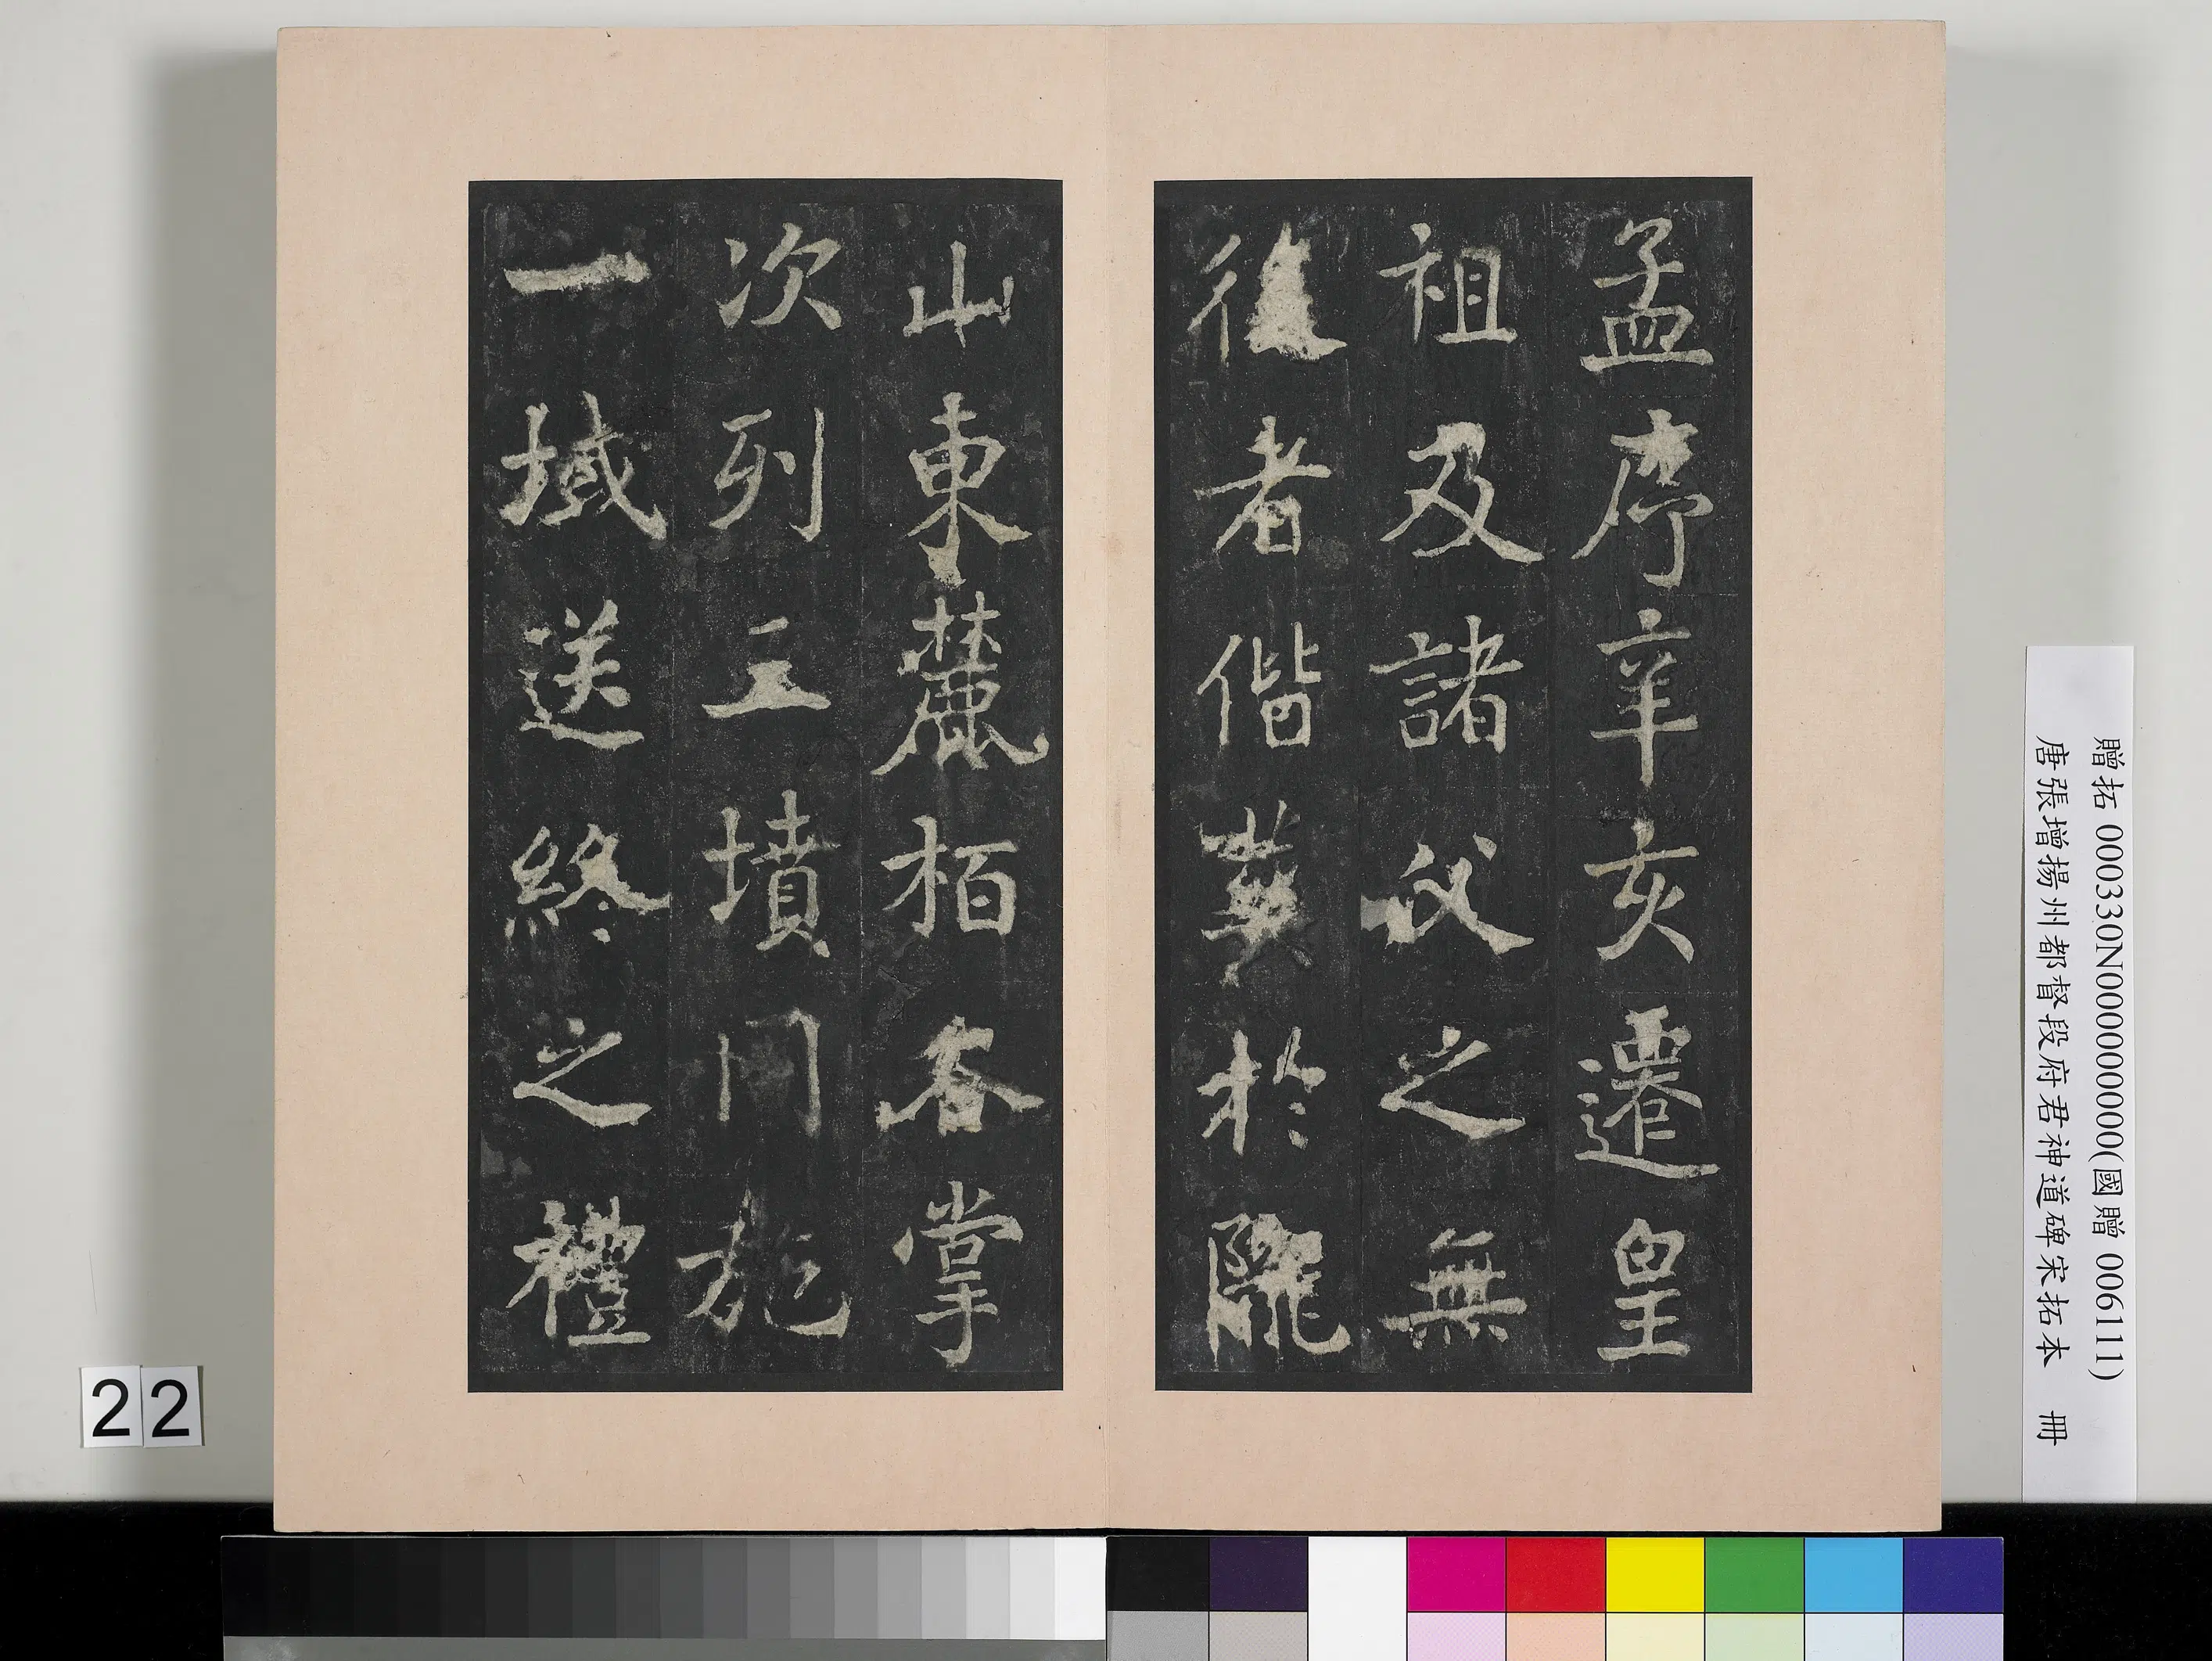 孟序辛亥遷皇
祖及諸父之無
後者偕葬於隴
山東麓栢各掌
次列三墳同施
一域送終之禮
贈拓 000330N000000000(國贈 006111)
唐張增揚州都督段府君神道碑宋拓本 冊
22